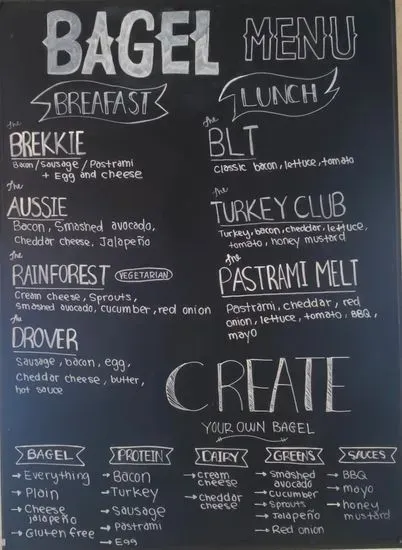 BAGEL MENU
BREAFAST
the
BREKKIE
Bacon/Sausage/Pastrami
+ Egg and cheese
the
AUSSIE
Bacon, Smashed avocado,
Cheddar cheese, Jalapeño
the
RAINFOREST VEGETARIAN
Cream cheese, Sprouts,
smashed avocado, cucumber, red onion
the
DROVER
Sausage, bacon, egg,
Cheddar cheese, butter,
hot sauce
LUNCH
the
BLT
Classic bacon, lettuce, tomato
the
TURKEY CLUB
Turkey, bacon, cheddar, lettuce,
tomato, honey mustard
the
PASTRAMI MELT
Pastrami, cheddar, red
onion, lettuce, tomato, BBQ,
mayo
CREATE
YOUR OWN BAGEL
BAGEL
→ Everything
→ Plain
→ Cheese
jalapeño
→ Gluten free
PROTEIN
→ Bacon
→ Turkey
→ Sausage
→ Pastrami
→ Egg
DAIRY
→ cream
cheese
→ cheddar
cheese
GREENS
→ smashed
avocado
→ cucumber
→ Sprouts
→ Jalapeño
→ Red onion
SAUCES
→ BBQ
→ mayo
→ honey
mustard